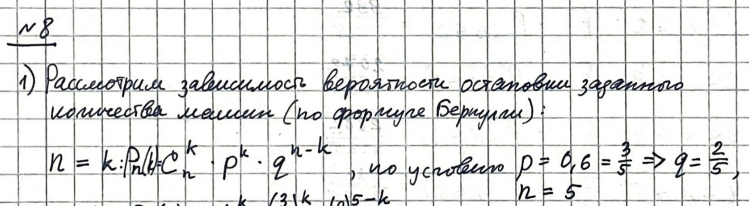 №8
1) Рассмотрим зависимость вероятности остановки заданного
количества машин (по формуле Бернулли):
n = k: Pₙ(k) = Cₙᵏ · pᵏ · qⁿ⁻ᵏ, по условию p = 0,6 = 3/5 => q = 2/5,
n = 5